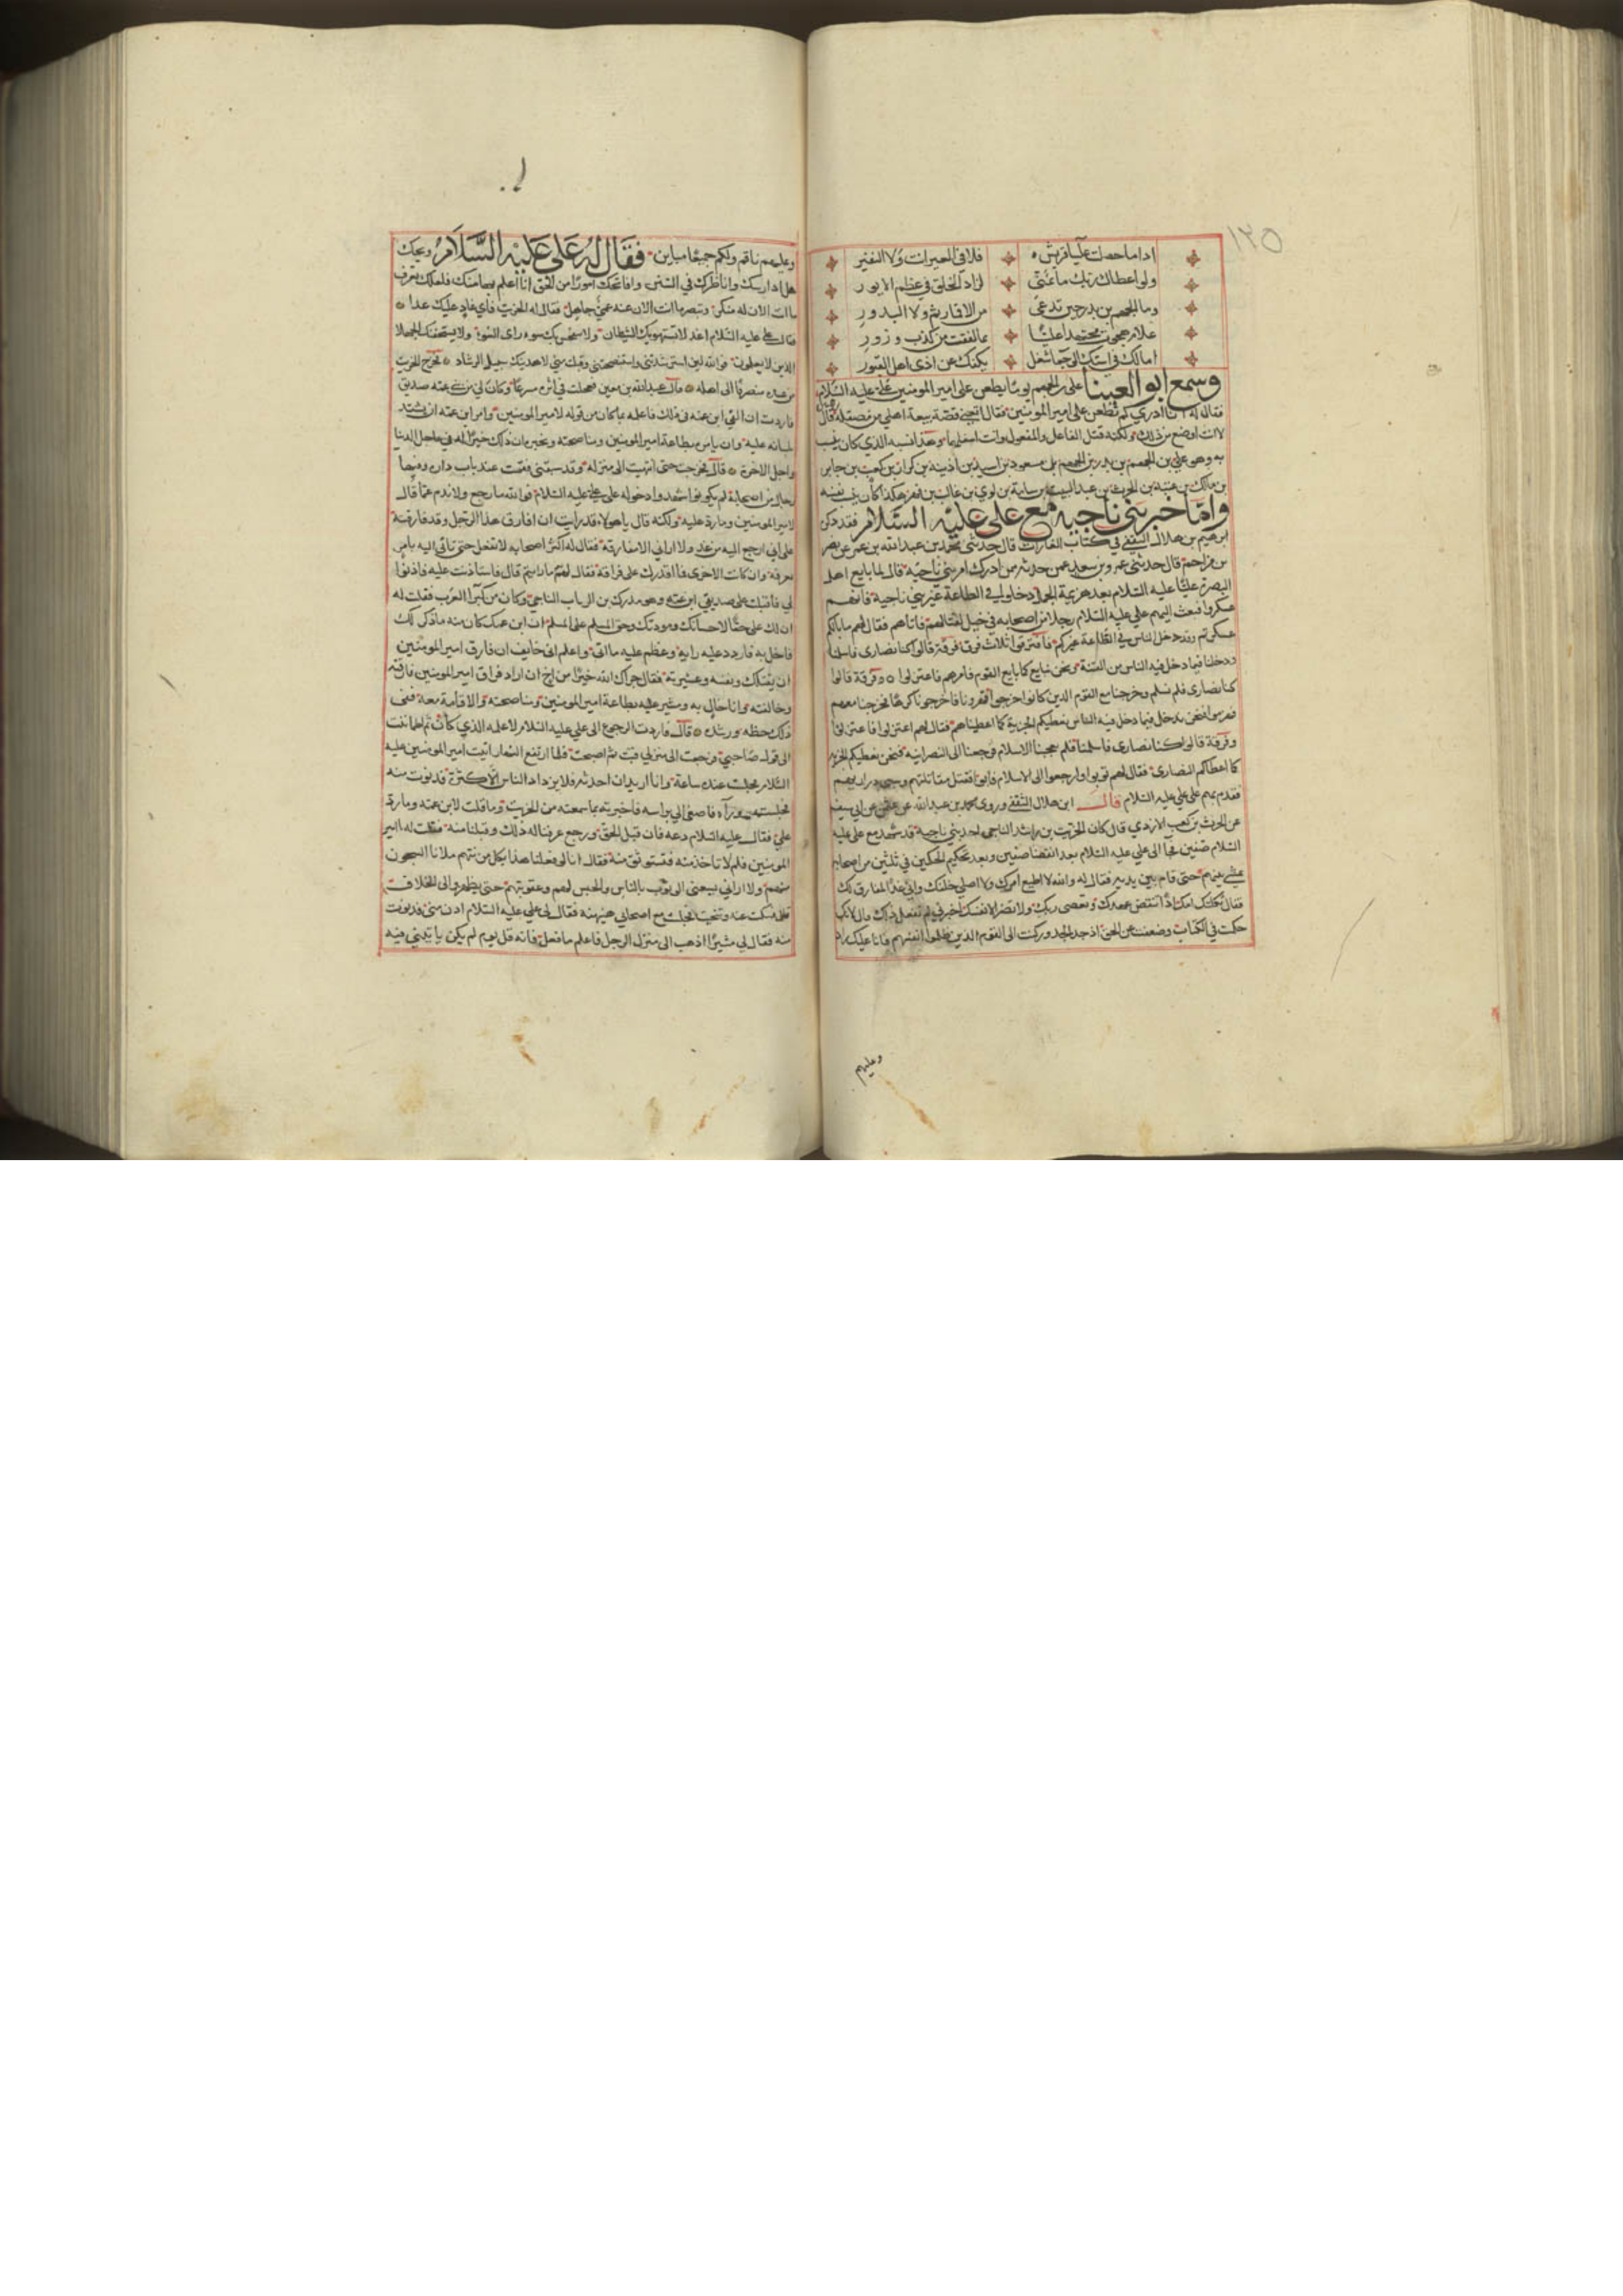 ١٢٥
اذا ما حصلت عليا قريش فلا في العير انت ولا النفير
ولو اعطاك ربك ما تمنى لزاد الخلق في عظم الايور
وما الجهم بن بدر حين تدعى من الاقار ثم ولا البدور
علام هجوت مجتهدا عليا بما لفقت من كذب و زور
امالك في استك الوجعا شغل يكفك عن اذى اهل القبور
وسمع ابو العينا على بن الجهم يوما يطعن على امير المومنين علي عليه السلام
فقال له انا ادري لم تطعن على امير المومنين فقال اتعني قصة بيعة اهلي من مصقلة قال
لا انت اوضع من ذلك ولكنه قتل الفاعل والمفعول وانت اسفلهما وهذا نسبه الذي كان ينسب
به وهو علي بن الجهم بن بدر بن الجهم بن مسعود بن اسيد بن اذينه بن كراز بن كعب بن جابر
بن مالك بن عتبة بن الحرث بن عبد البيت بن سامة بن لوي بن غالب بن فهر هكذا كان
واما خبر بني ناجيه مع علي عليه السلام فقد ذكر
ابرهيم بن هلال الثقفي في كتاب الغارات قال حدثني محمد بن عبدالله بن عن نصر
بن مزاحم قال حدثني عمر وبن سعد عمن حدثه ممن ادرك امر بني ناجية قال لما بايع اهل
البصرة عليا عليه السلام بعد هزيمة الجمل دخلوا في الطاعة غير بني ناجية فانهم
عسكروا فبعث اليهم علي عليه السلام رجلا من اصحابه في خيل ليقاتلهم فاتاهم فقال لهم ما بالكم
عسكرتم وقد دخل الناس في الطاعة غيركم فافترقوا ثلاث فرق فرقة قالوا كنا نصارى فاسلمنا
ودخلنا فيما دخل فيه الناس من الفتنة ونحن نبايع كما بايع القوم فامرهم فاعتزلوا وفرقة قالوا
كنا نصارى فلم نسلم وخرجنا مع القوم الذين كانوا خرجوا قهرونا فاخرجونا كرها فخرجنا معهم
فهزموا فنحن ندخل فيما دخل فيه الناس نعطيكم الجزية كما اعطيناهم فقال لهم اعتزلوا فاعتزلوا
وفرقة قالوا كنا نصارى فاسلمنا فلم يعجبنا الاسلام فرجعنا الى النصرانية فنحن نعطيكم الجزيه
كما اعطاكم النصارى فقال لهم توبوا وارجعوا الى الاسلام فابوا فقتل مقاتلتهم وسبى ذراريهم
فقدم بهم على علي عليه السلام قال ابن هلال الثقفي وروى محمد بن عبدالله عن عن ابي سيف
عن الحرث بن كعب الازدي قال كان الخريت بن راشد الناجي احد بني ناجية قد شهد مع علي عليه
السلام صفين فجا الى علي عليه السلام بعد انقضا صفين وبعد تحكيم الحكمين في ثلثين من اصحابه
يمشي بينهم حتى قام بين يديه فقال له والله لا اطيع امرك ولا اصلي خلفك واني غدا لمفارق لك
فقال ثكلتك امك اذا تنقض عهدك وتعصى ربك ولا تضر الا نفسك اخبرني لم تفعل ذلك قال لانك
حكمت في الكتاب وضعفت عن الحق اذ جد الجد وركنت الى القوم الذين ظلموا انفسهم فانا عليك راد
وعليهم
وعليهم ناقم ولكم جميعا مباين فقال له علي عليه السلام ويحك
هلم ادارسك واناظرك في السنن وافاتحك امورا من الحق انا اعلم بها منك فلعلك تعرف
ما انت الان له منكر وتبصر ما انت الان عنه عمي جاهل فقال له الخريت فاني غاد عليك غدا
فقال علي عليه السلام اغد لا يستهوينك الشيطان ولا يتقحمن بك سوء راى السوء ولا يستخفنك الجهلا
الذين لا يعلمون فوالله لين استرشدتني واستنصحتني وقبلت مني لاهدينك سبيل الرشاد فخرج الخريت
من عنده منصرفا الى اهله قال عبدالله بن معين فعجلت في اثره مسرعا وكان لي من بني عمه صديق
فاردت ان القى ابن عمه في ذلك فاعلمه بما كان من قوله لامير المومنين وامر ابن عمه ان يشتد
بلسانه عليه وان يامره بطاعة امير المومنين ومناصحته ويخبره ان ذلك خير له في عاجل الدنيا
واجل الاخرة قال فخرجت حتى انتهيت الى منزله وقد سبقني فقمت عند باب داره وفيها
رجال من اصحابه لم يكونوا شهدوا دخوله على علي عليه السلام فوالله ما رجع ولا ندم عما قال
لامير المومنين وما رد عليه ولكنه قال يا هولاء قد رايت ان افارق هذا الرجل وقد فارقته
على ان ارجع اليه من غد ولا اراني الا مفارقه فقال له اكثر اصحابه لا تفعل حتى تاتيه فان اتاك بامر
تعرفه وان كانت الاخرى فما اقدرك على فراقه فقال لهم نعم ما رايتم قال فاستاذنت عليه فاذنوا
لي فاقبلت على صديقي ابن عمه وهو مدرك بن الريان الناجي وكان من كبرا العرب فقلت له
ان لك علي حقا لاحسانك ومودتك وحق المسلم على المسلم ان ابن عمك كان منه ما ذكر لك
فاخل به فاردد عليه رايه وعظم عليه ما اتى واعلم اني خايف ان فارق امير المومنين
ان يقتلك ونفسه وعشيرته فقال جزاك الله خيرا من اخ ان اراد فراق امير المومنين فارقته
وخالفته وانا خال به ومشير عليه بطاعة امير المومنين ومناصحته والاقامة معه ففي
ذلك حظه ورشده قال فاردت الرجوع الى علي عليه السلام لاعلمه الذي كان ثم اطماننت
الى قول صاحبي فرجعت الى منزلي فبت ثم اصبحت فلما ارتفع النهار اتيت امير المومنين عليه
السلام فجلست عنده ساعة وانا اريد ان احدثه فلا يزداد الناس الا كثرة فدنوت منه
فجلست وراه فاصغى الي براسه فاخبرته بما سمعته من الخريت وما قلت لابن عمه وما رد
علي فقال عليه السلام دعه فان قبل الحق ورجع عرفنا له ذلك وقبلنا منه فقلت له يا امير
المومنين فلم لا تاخذه فتستوثق منه فقال انا لو فعلنا هذا بكل من نتهم ملانا السجون
منهم ولا اراني يسعني الوثوب بالناس والحبس لهم وعقوبتهم حتى يظهروا لي الخلاف
فسكت عنه وتنحيت فجلست مع اصحابي هنيهة فقال لي علي عليه السلام ادن مني فدنوت
منه فقال لي مسرا اذهب الى منزل الرجل فاعلم ما فعل فانه قل يوم لم يكن ياتيني فيه